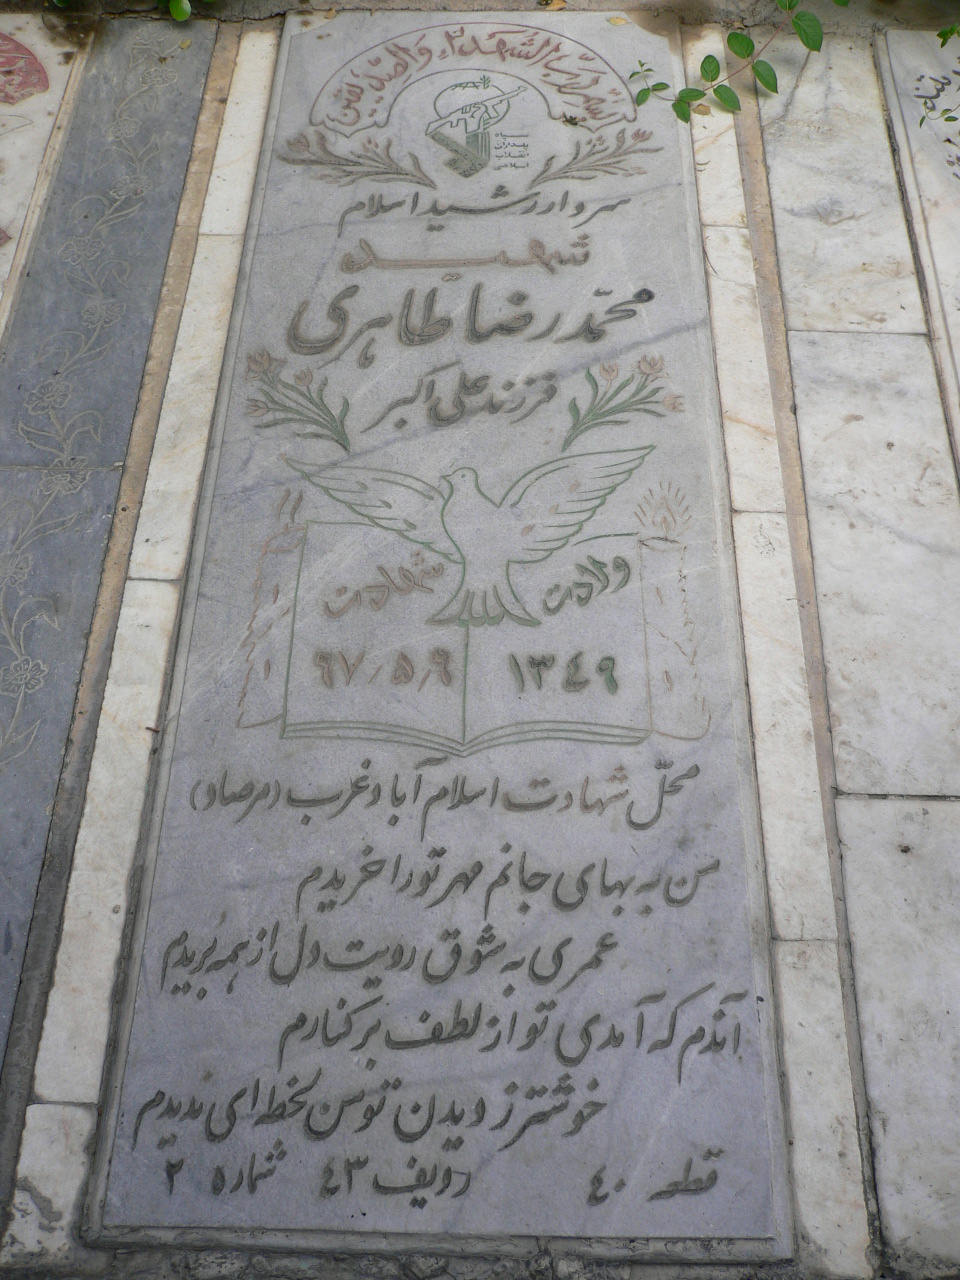 بسم رب الشهداء والصدیقین
سپاه
پاسداران
انقلاب
اسلامی
سردار رشید اسلام
شهید
محمّد رضا طاهری
فرزند علی اکبر
ولادت
شهادت
۱۳۴۹
۶۷/۵/۶
محلّ شهادت اسلام آباد غرب (مرصاد)
من به بهای جانم مهر تو را خریدم
عمری به شوق رویت دل از همه بُریدم
آندم که آمدی تو از لطف بر کنارم
خوشتر ز دیدن تو من لحظه ای ندیدم
قطعه ۴۰ ردیف ۴۳ شماره ۲